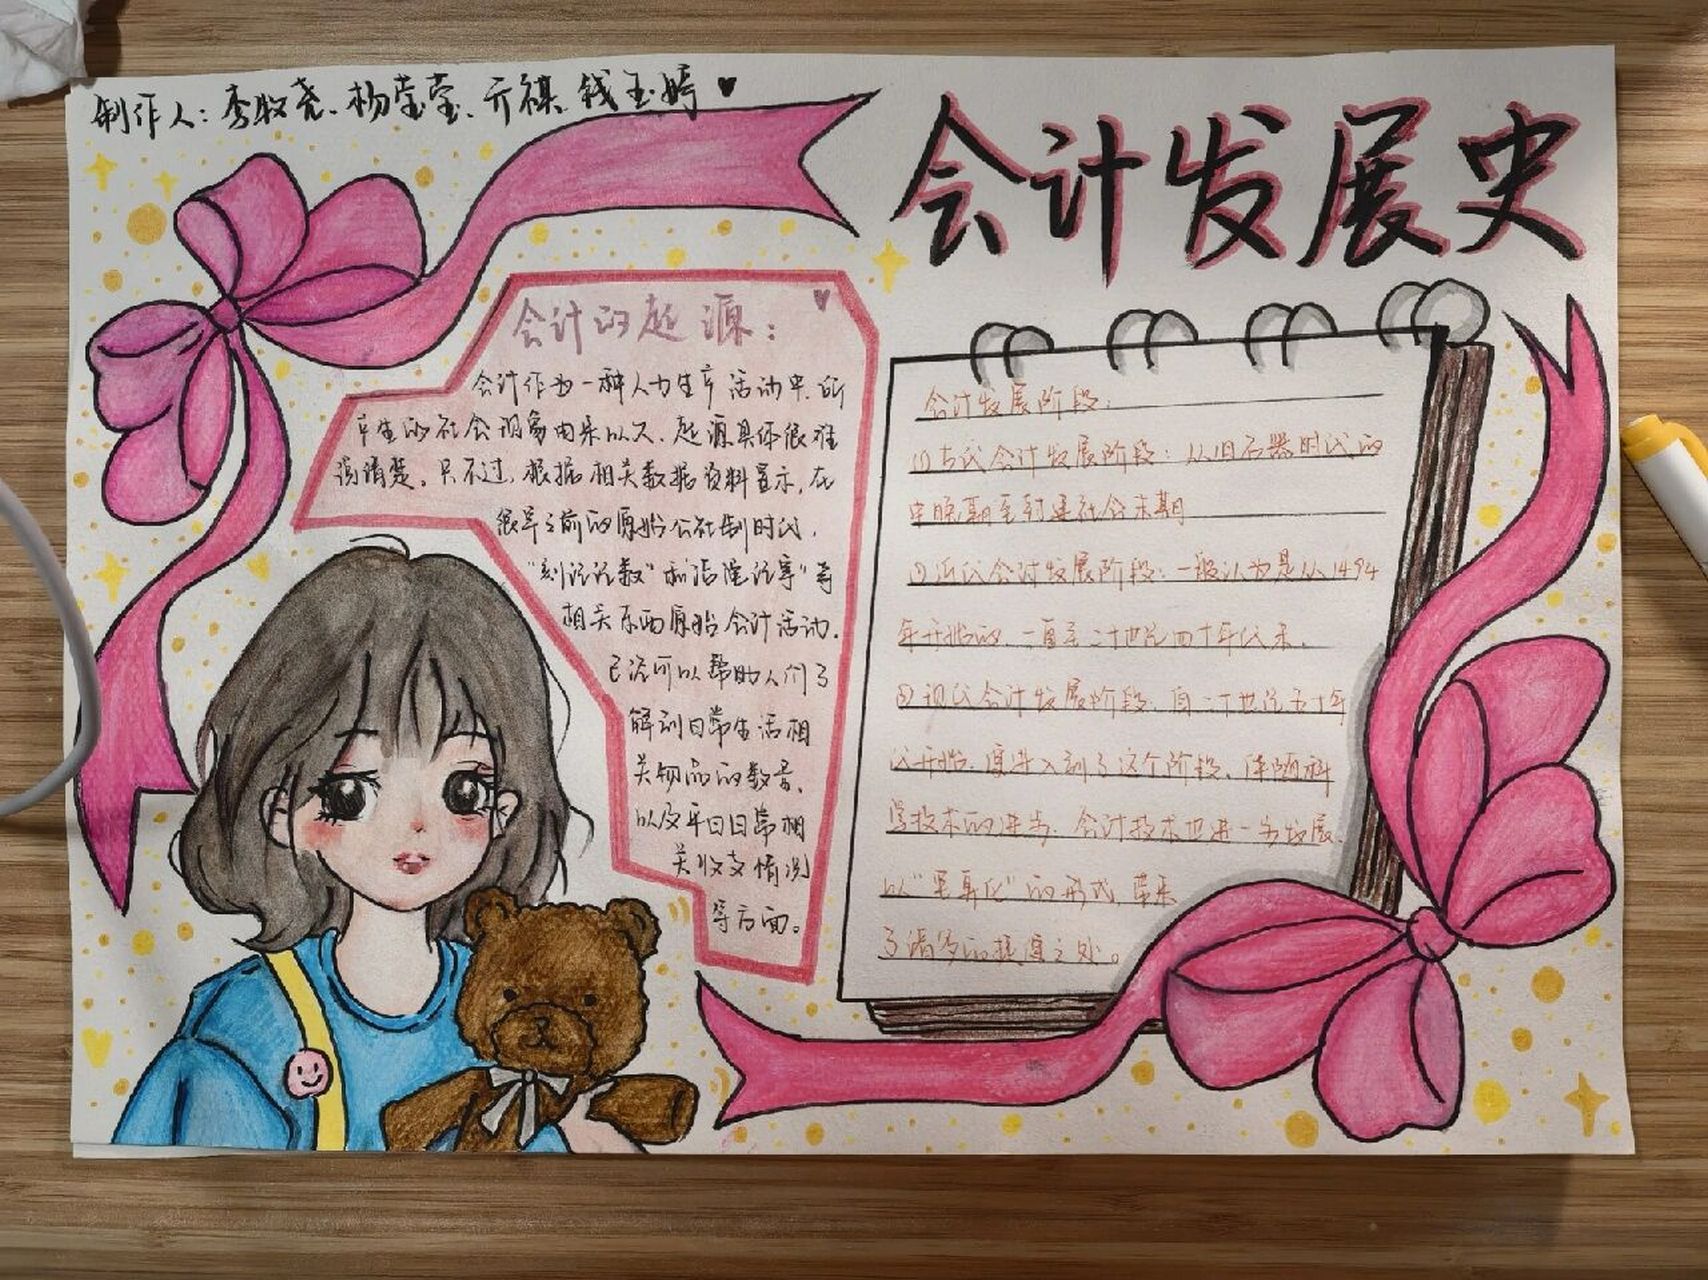 制作人：李牧尧、杨莹莹、亓祺、钱玉婷
会计发展史
会计的起源：
会计作为一种人为生产活动中，所
产生的社会现象由来以久、起源具体很难
说清楚。只不过，根据相关数据资料显示，在
很早之前的原始公社制时代，
"刻记记数"和"结绳记事"等
相关东西原始会计活动，
已经可以帮助人们了
解到日常生活相
关物品的数量、
以及平日日常相
关收支情况
等方面。
会计发展阶段：
(1)古代会计发展阶段：从旧石器时代的
中晚期至封建社会末期
②近代会计发展阶段：一般认为是从1494
年开始的，一直至二十世纪四十年代末，
③现代会计发展阶段，自二十世纪五十年
代开始，度进入到了这个阶段、伴随科
学技术的进步，会计技术也进一步发展、
以"笔算化"的形式，带来
了诸多的提速之处。